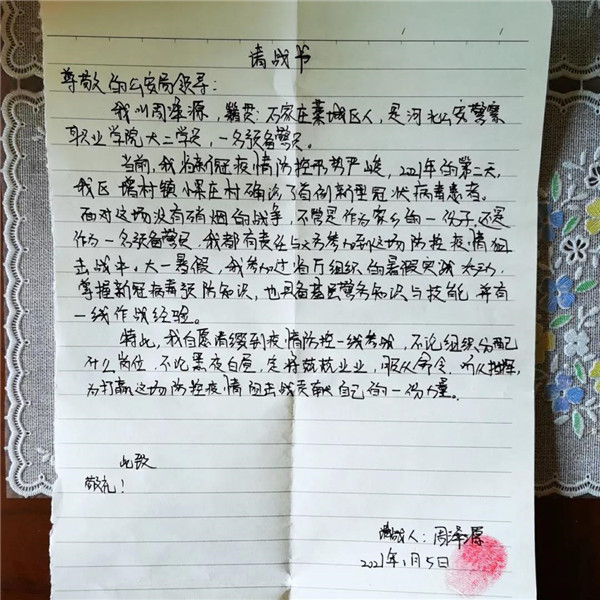 请战书
尊敬的公安局领导：
我叫周泽源，籍贯：石家庄藁城区人，是河北公安警察
职业学院大二学员，一名预备警员。
当前，我省新冠疫情防控形势严峻，2021年的第二天，
我区增村镇小果庄村确诊了首例新型冠状病毒患者。
面对这场没有硝烟的战争，不管是作为家乡的一份子，还是
作为一名预备警员，我都有责任与义务参加到这场防控疫情阻
击战中。大一暑假，我参加过省厅组织的暑假实践活动，
掌握新冠病毒预防知识，也具备基层警务知识与技能，并有
一线作战经验。
特此，我自愿请缨到疫情防控一线参战，不论组织分配
什么岗位，不论黑夜白昼，定将兢兢业业，服从命令，听从指挥，
为打赢这场防控疫情阻击战贡献自己的一份力量。
此致
敬礼！
请战人：周泽源
2021年1月5日